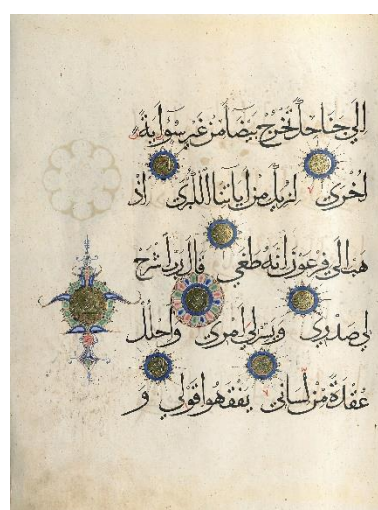 إلى جناحك تخرج بيضاء من غير سوء آية
أخرى لنريك من آياتنا الكبرى اذ
هب إلى فرعون إنه طغى قال رب اشرح
لي صدري ويسر لي أمري واحلل
عقدة من لساني يفقهوا قولي و